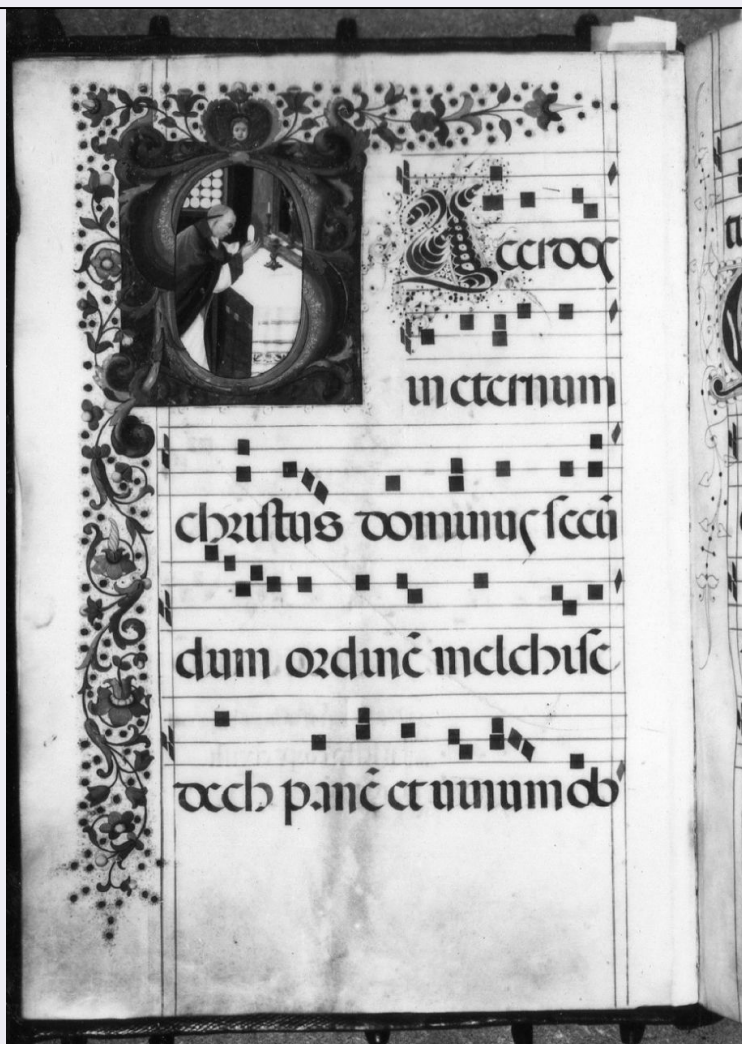 SAcerdos
in eternum
christus dominus secū
dum ordinē melchise
dech panē et uinum ob